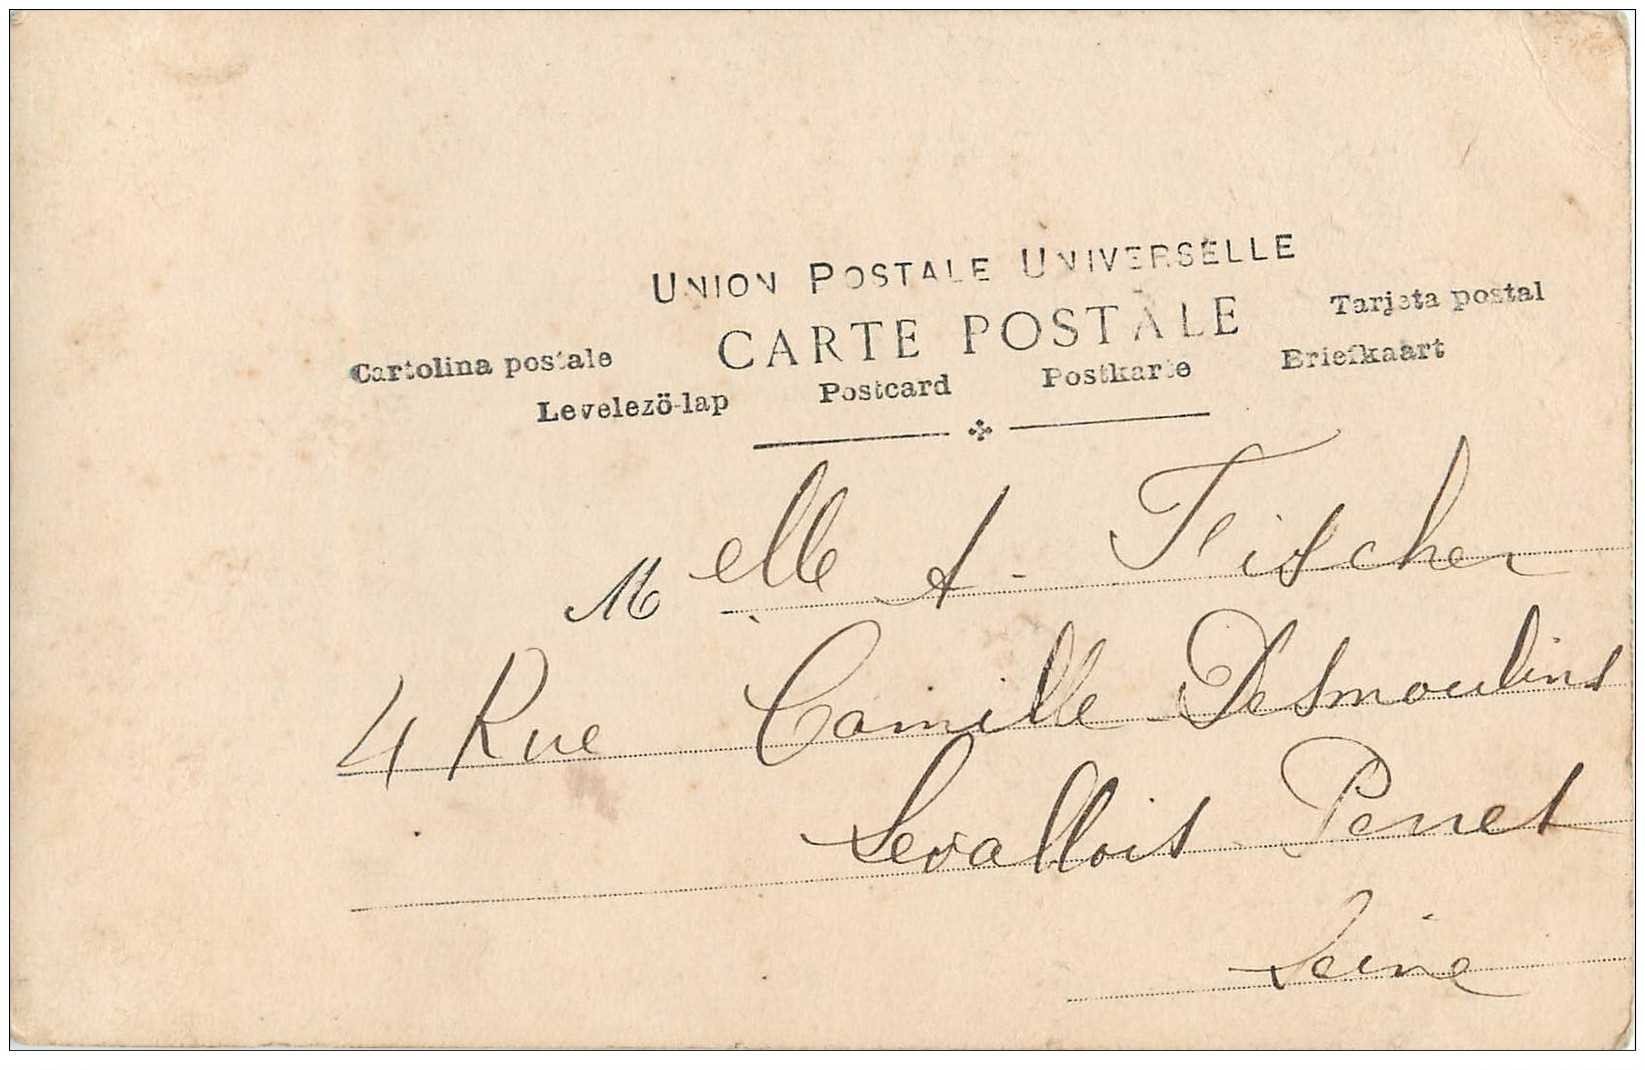 UNION POSTALE UNIVERSELLE
CARTE POSTALE
Tarjeta postal
Cartolina postale
Levelezö-lap
Postcard
Postkarte
Briefkaart
Melle A. Fischer
4 Rue Camille Desmoulins
Levallois Perret
Seine